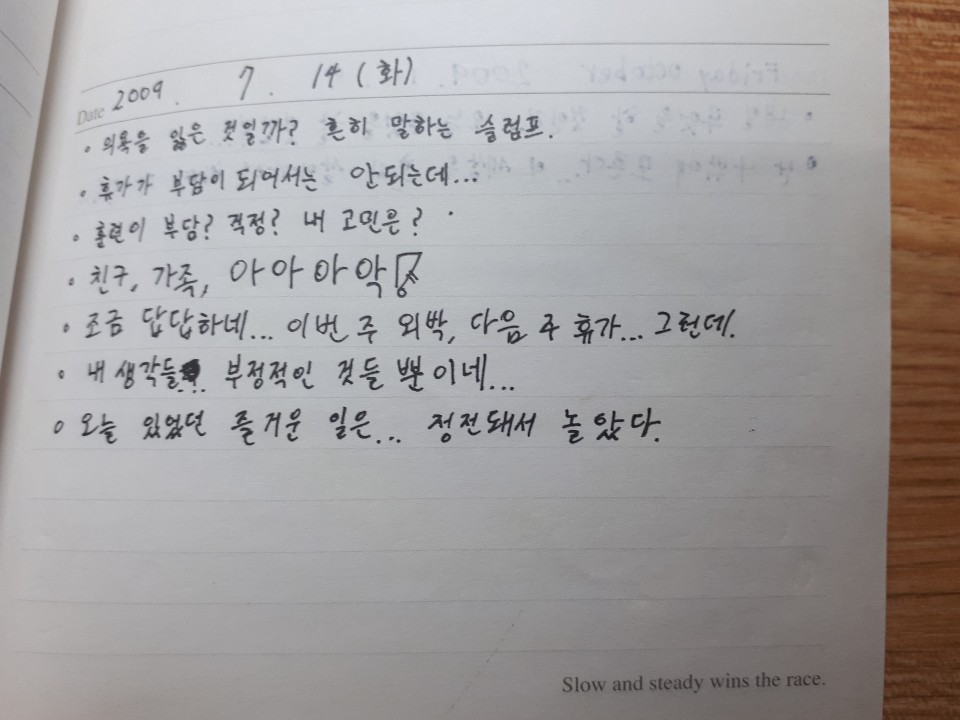 Date 2009. 7. 14 (화)
• 의욕을 잃은 것일까? 흔히 말하는 슬럼프.
• 휴가가 부담이 되어서는 안되는데...
• 훈련이 부담? 걱정? 내 고민은?
• 친구, 가족, 아아아악
• 조금 답답하네... 이번 주 외박, 다음 주 휴가... 그런데.
• 내 생각들... 부정적인 것들 뿐이네...
• 오늘 있었던 즐거운 일은... 정전돼서 놀았다.
Slow and steady wins the race.